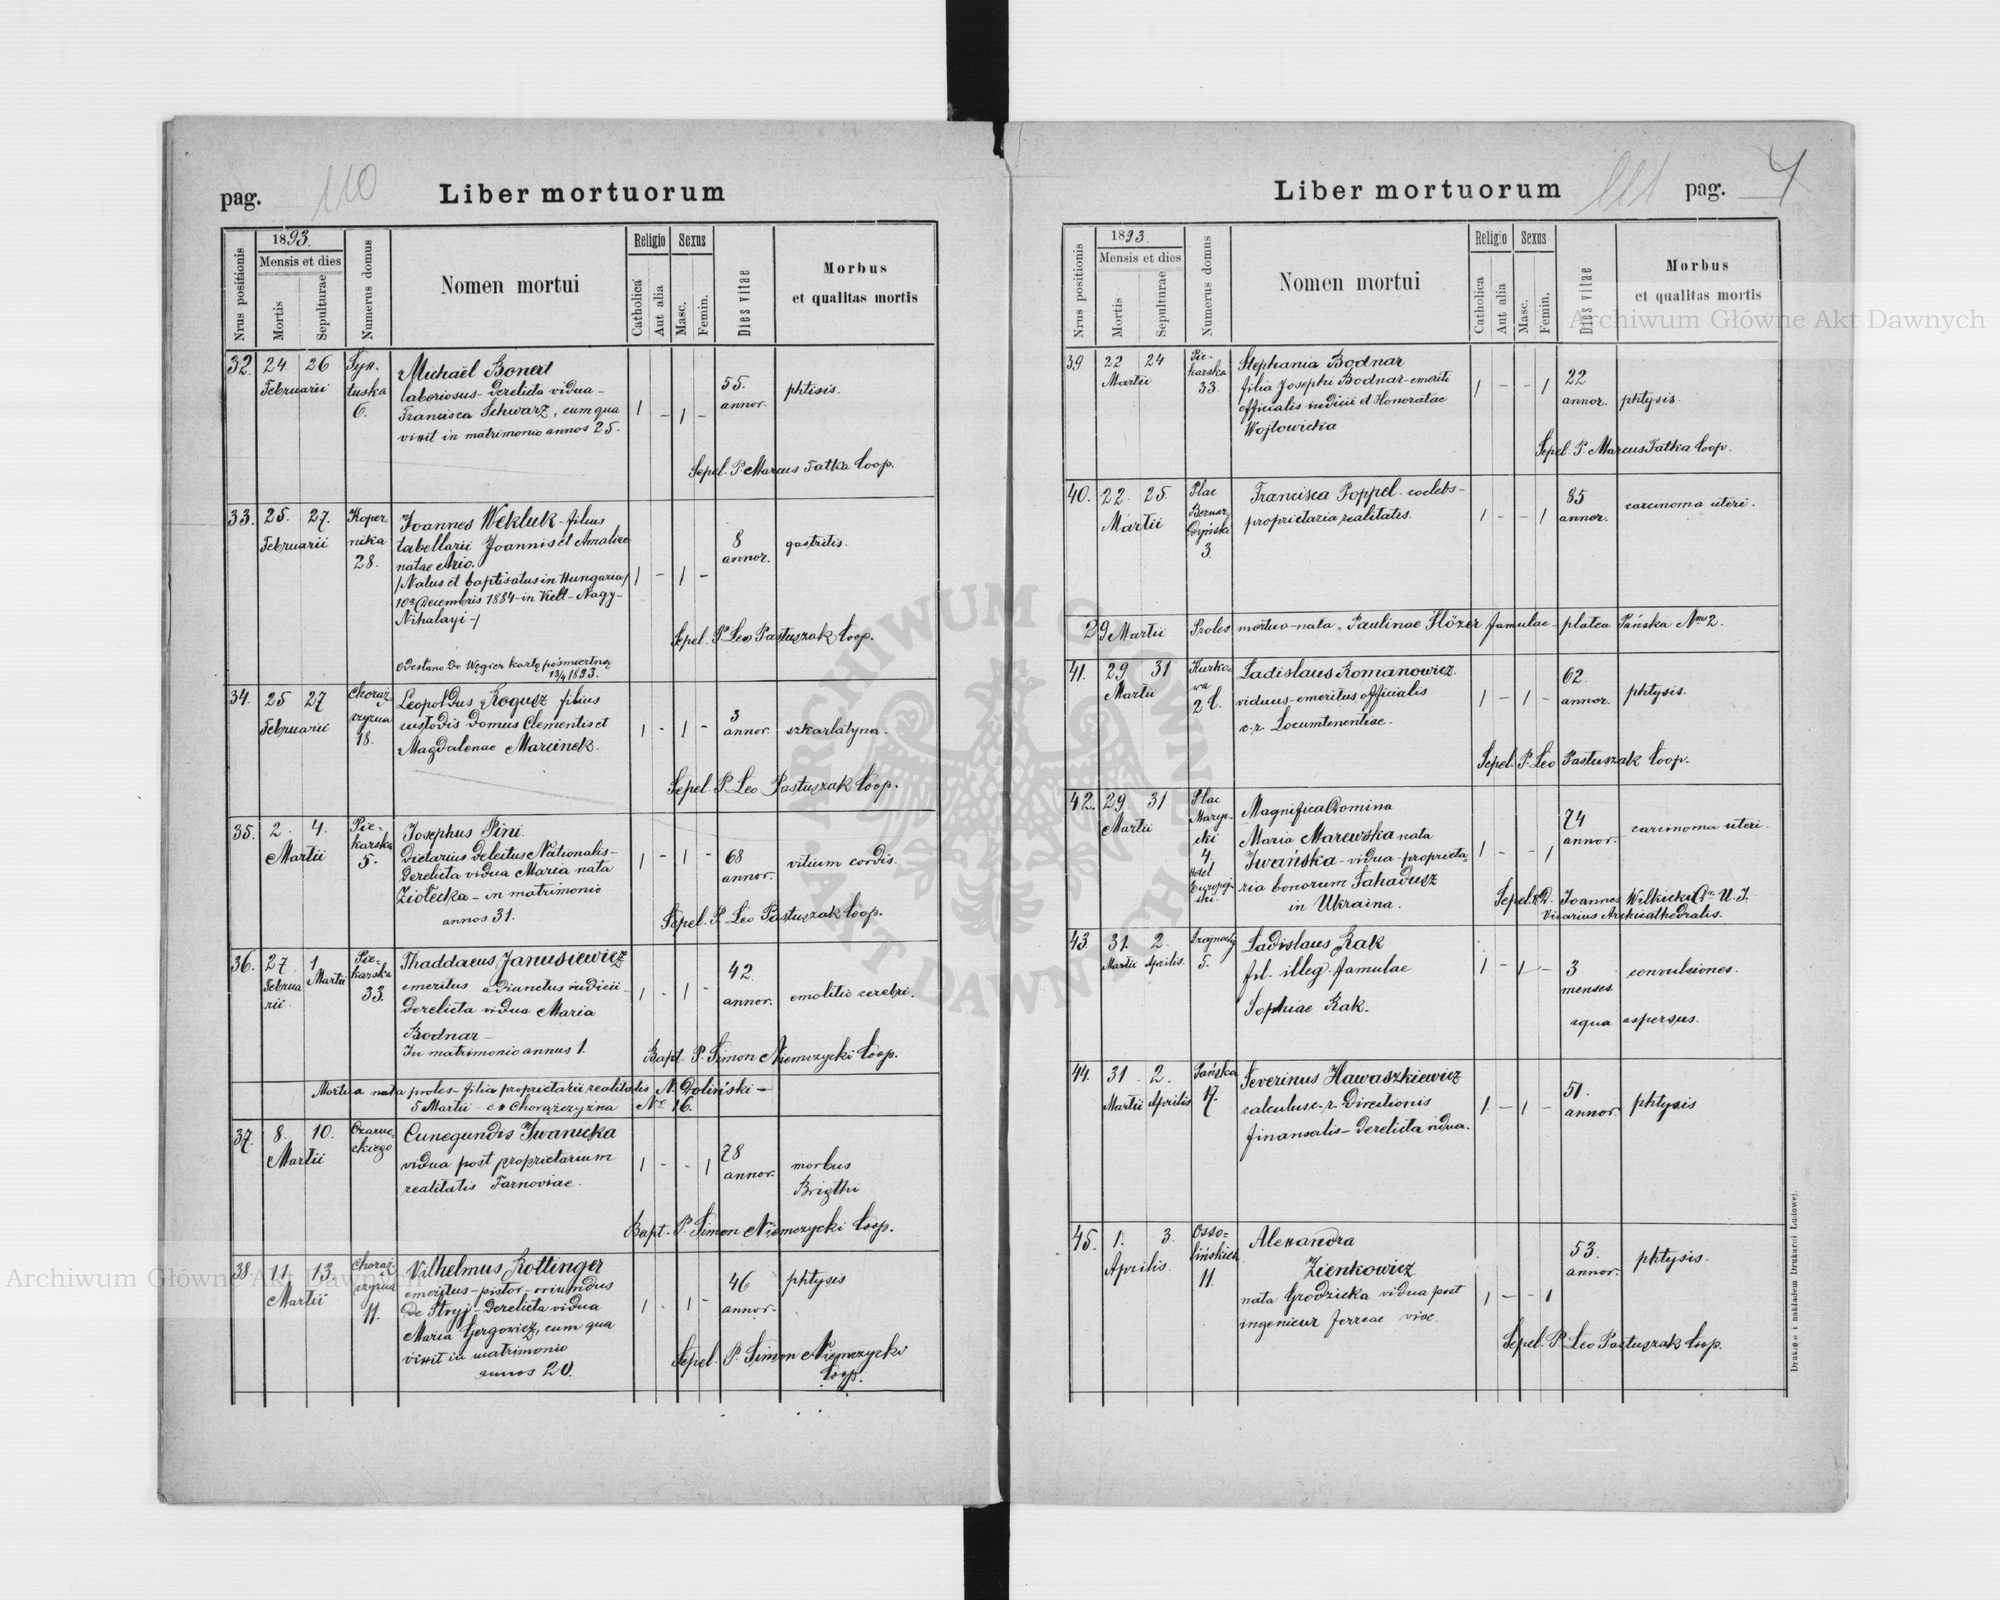 pag. 110 Liber mortuorum
Nrus positionis
1893.
Mensis et dies
Mortis
Sepulturae
Numerus domus
Nomen mortui
Religio
Catholica
Aut alia
Sexus
Masc.
Femin.
Dies vitae
Morbus
et qualitas mortis
32. 24 26
Februarii
6.
Michaël Bonert
laboriosus - derelicta vidua -
Francisca Schwarz, cum qua
vixit in matrimonio annos 25.
1 - 1 -
55.
annor.
phtisis.
Sepel. P. Marcus Fatka Coop.
33. 25. 27.
Februarii
Koper-
nika
28.
Joannes Wekluk - filius
tabellarii Joannis et Amaliae
natae
/Natus et baptisatus in Hungaria/
10a Decembris 1884 - in Kell - Nagy -
Nihalayi -/
1 - 1 -
8
annor.
gastritis.
Sepel. P. Leo Pastuszak Coop.
Odesłano do Węgier kartę pośmiertną
13/4 1893.
34. 25 27
Februarii
Choraż-
czyzna
18.
Leopoldus Rogusz filius
custodis domus Clementis et
Magdalenae Marcinek.
1 - 1 -
3
annor.
szkarlatyna.
Sepel. P. Leo Pastuszak Coop.
35. 2. 4.
Martii
Pie-
karska
5.
Josephus Pini.
Dietarius Nationalis -
derelicta vidua Maria nata
Ziołecka - in matrimonio
annos 31.
1 - 1 -
68
annor.
vitium cordis.
Sepel. P. Leo Pastuszak Coop.
36. 27 1
Februa
rii. Martii
Pie-
karska
33.
Thaddaeus Janusiewicz
emeritus adiunctus iudicii -
derelicta vidua Maria
Bodnar -
In matrimonio annus 1.
1 - 1 -
42
annor.
emolitio cerebri.
Bapt. P. Simon Niemczycki Coop.
Mortua nata proles - filia proprietarii realitatis N. Doliński -
5 Martii - Chorążczyzna Nr 16.
37. 8. 10.
Martii
Czarne-
ckiego
Cunegundis Iwanicka
vidua post proprietarium
realitatis Tarnoviae.
1 - - 1
78
annor.
morbus
Brigthi
Bapt. P. Simon Niemczycki Coop.
38. 11. 13.
Martii
Choraż-
czyzna
11.
Vilhelmus Kottinger
emeritus - pistor - oriundus
de Stryj - derelicta vidua
Maria Gergowicz, cum qua
vixit in matrimonio
annos 20.
1 - 1 -
46
annor.
phtysis
Sepel. P. Simon Niemczycki
Coop.
Liber mortuorum 111 pag. 4
Nrus positionis
1893.
Mensis et dies
Mortis
Sepulturae
Numerus domus
Nomen mortui
Religio
Catholica
Aut alia
Sexus
Masc.
Femin.
Dies vitae
Morbus
et qualitas mortis
39 22 24
Martii
Pie-
karska
33.
Stephania Bodnar
filia Josephi Bodnar - emeriti
officialis iudicii et Honoratae
Wojtowicka
1 - - 1
22
annor.
phtysis.
Sepel. P. Marcus Fatka Coop.
40. 22. 25.
Martii
Plac
Bernar-
dyński
3.
Francisca Poppel - coelebs -
proprietaria realitatis.
1 - - 1
85
annor.
carcinoma uteri.
29 Martii Proles mortuo-nata Paulinae Hözer famulae - platea Pańska Nro 2.
41. 29 31
Martii
Kurko-
wa
Ladislaus Romanowicz.
viduus - emeritus officialis
c.r. Locumtenentiae.
1 - 1 -
62.
annor.
phtysis.
Sepel. P. Leo Pastuszak Coop.
42. 29 31.
Martii
Plac
Maryac-
cki
4.
Hotel
Europej-
ski.
Magnifica Domina
Maria Marewska nata
Iwańska - vidua - proprieta-
ria bonorum Sahadusz
in Ukraina.
1 - - 1
74
annor.
carcinoma uteri.
Joannes Wilkicki Dr U. J.
Vicarius Archicathedralis.
43 31. 2.
Martii Aprilis.
5.
Ladislaus Rak
fil. illeg. famulae
Sophiae Rak.
1 - 1 -
3
menses.
convulsiones.
aqua aspersus.
44. 31. 2.
Martii Aprilis
Pańska
17.
Severinus Hawaszkiewicz
calculus c. r. Directionis
finansalis - derelicta vidua.
1. - 1 -
51.
annor.
phtysis
45. 1. 3.
Aprilis.
Osso-
lińskich
11.
Alexandra
Zienkowicz
nata Grodzicka vidua post
ingenieur ferreae viae.
1 - - 1
53.
annor.
phtysis.
Sepel. P. Leo Pastuszak Coop.
Drukiem i nakładem Drukarni Ludowej.
Archiwum Główne Akt Dawnych
Archiwum Główne Akt Dawnych
ARCHIWUM GŁÓWNE AKT DAWNYCH